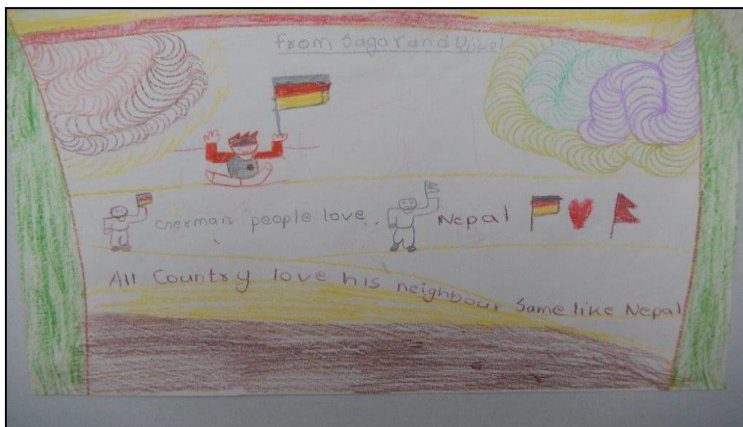 from Sagar and Ujjwol
cherman people love.. Nepal
All Country love his neighbour same like Nepal